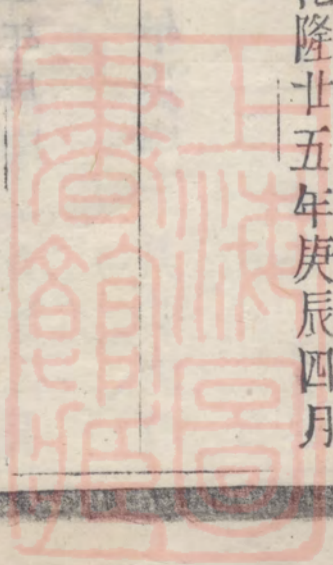 隆廿五年庚辰四月
上海圖
書館藏